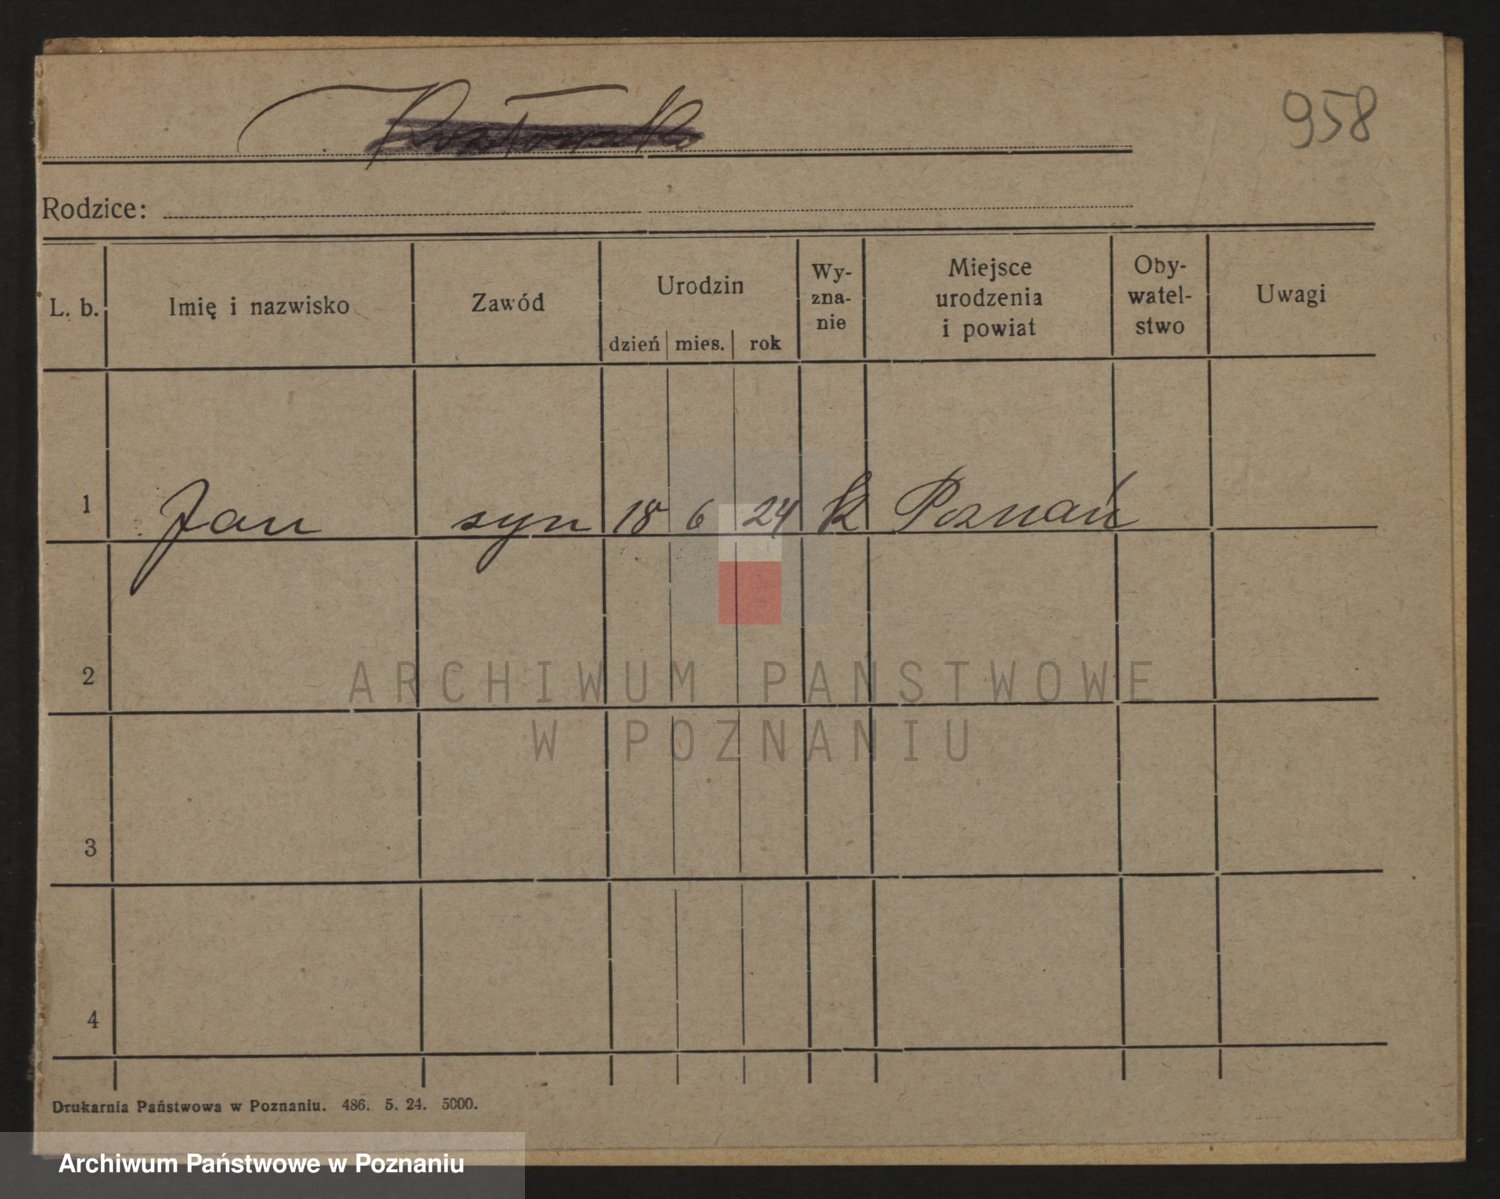 958
Rodzice:
L. b. Imię i nazwisko Zawód Urodzin dzień mies. rok Wy-
zna-
nie Miejsce
urodzenia
i powiat Oby-
watel-
stwo Uwagi
1 Jan syn 18 6 24 k Poznań
2
3
4
ARCHIWUM PAŃSTWOWE
W POZNANIU
Drukarnia Państwowa w Poznaniu. 486. 5. 24. 5000.
Archiwum Państwowe w Poznaniu